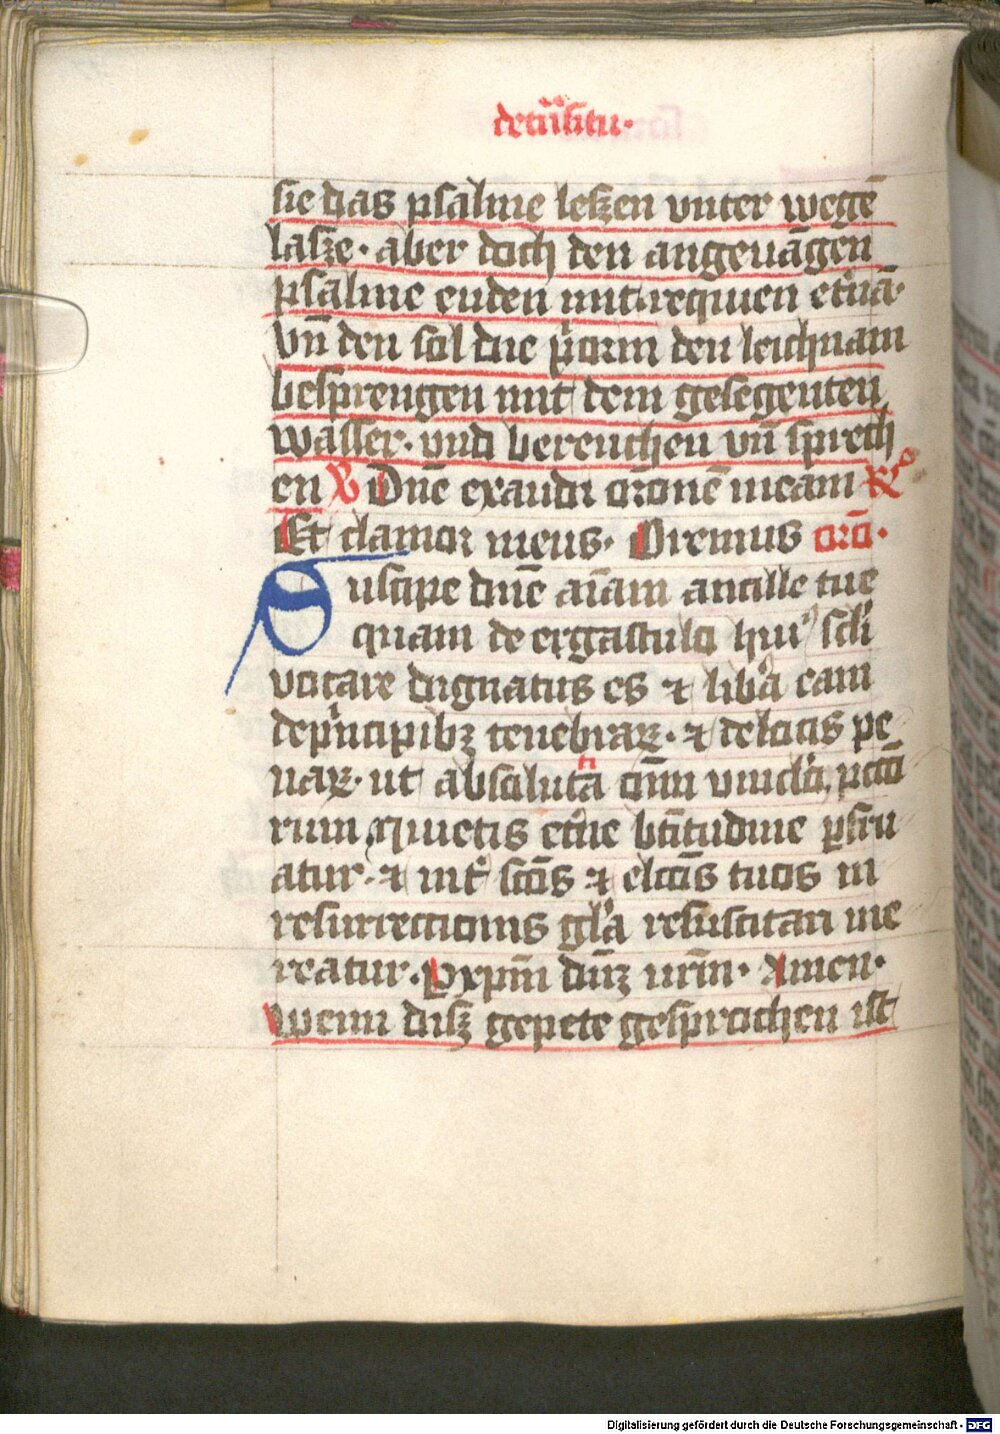 de t̄nsitu·
sie das psalme leszen vnter wegē
lasze· aber doch den angeuāgen
psalme enden mit· requien et̄nā·
vn̄ den sal der p̄orin den leichnam
besprengen mit dem gesegenten
wasser· vnd bereuchen vn̄ sprech
en ℣ Dn̄e exaudi or̄onē meam ℟
Et clamor meus· Oremus orō·
Suscipe dn̄e aīam ancille tue
quam de ergastulo huiꝰ scl̄i
vocare dignatus es ⁊ lib̄a eam
de p̄ncipibꝫ tenebraꝝ· ⁊ de locis pe
naꝝ· ut absoluta om̄i vinclo pctō
rum quietis et̄ne btītudine ꝑfru
atur· ⁊ int̄ sctōs ⁊ elctōs tuos in
resurrectionis gl̄a resuscitari me
reatur· Pxpm̄ dn̄ꝫ nr̄m· Amen·
Wenn disz gepete gesprochen ist
Digitalisierung gefördert durch die Deutsche Forschungsgemeinschaft - DFG